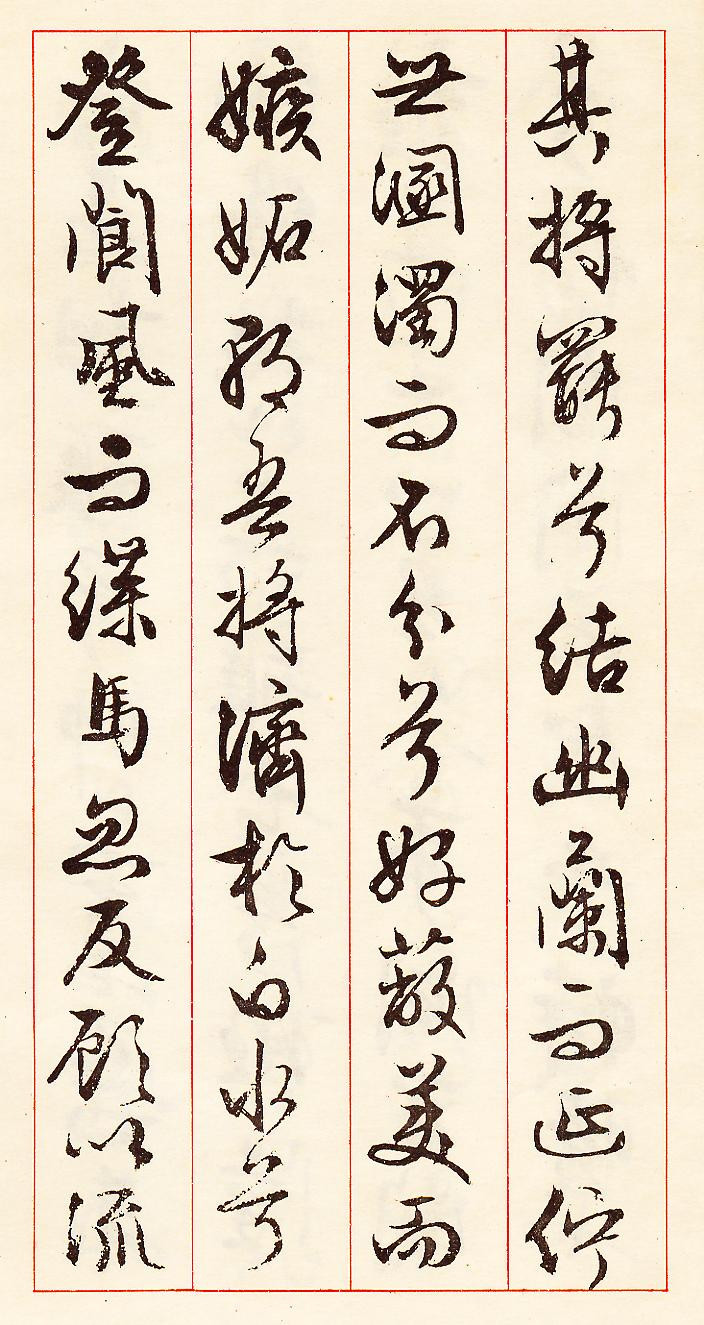 其將罷兮結幽蘭而延佇
世溷濁而不分兮好蔽美而
嫉妬朝吾將濟於白水兮
登閬風而緤馬忽反顧以流